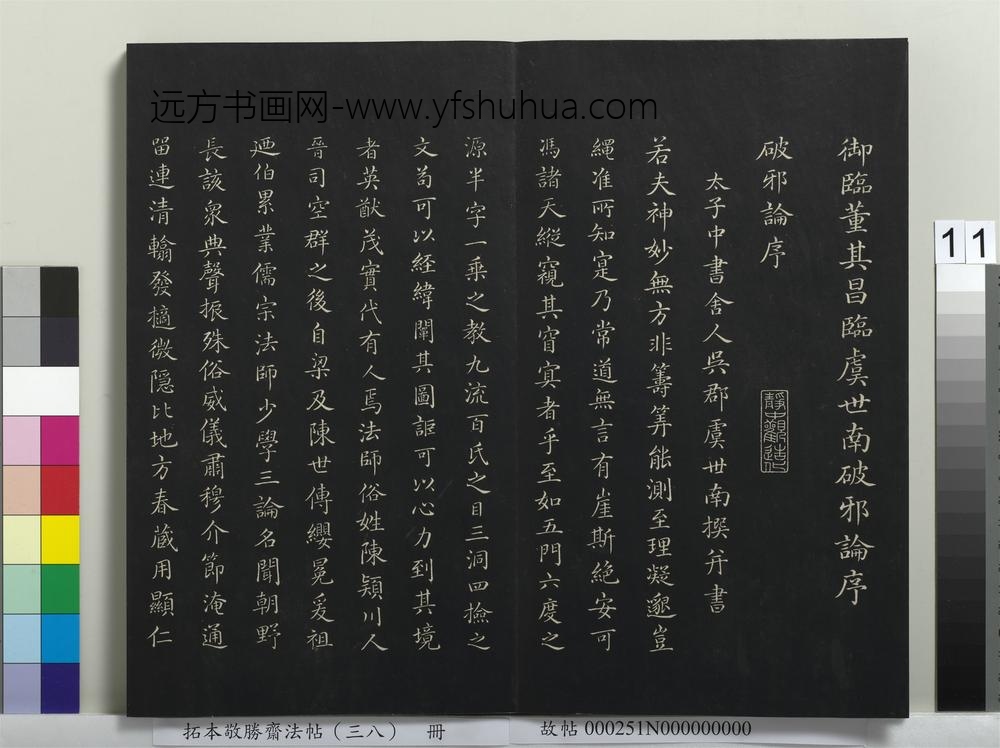 御臨董其昌臨虞世南破邪論序
破邪論序
太子中書舍人吳郡虞世南撰并書
若夫神妙無方非籌筭能測至理凝邈豈
繩准所知寔乃常道無言有崖斯絕安可
馮諸天縱窺其窅冥者乎至如五門六度之
源半字一乘之教九流百氏之目三洞四撿之
文苟可以經緯闡其圖詎可以心力到其境
者英猷茂實代有人焉法師俗姓陳潁川人
晉司空群之後自梁及陳世傳纓冕爰祖
廼伯累業儒宗法師少學三論名聞朝野
長該衆典聲振殊俗威儀肅穆介節淹通
留連清翰發擿微隱比地方春蔵用顯仁
远方书画网-www.yfshuhua.com
拓本敬勝齋法帖（三八） 冊
故帖 000251N000000000
11